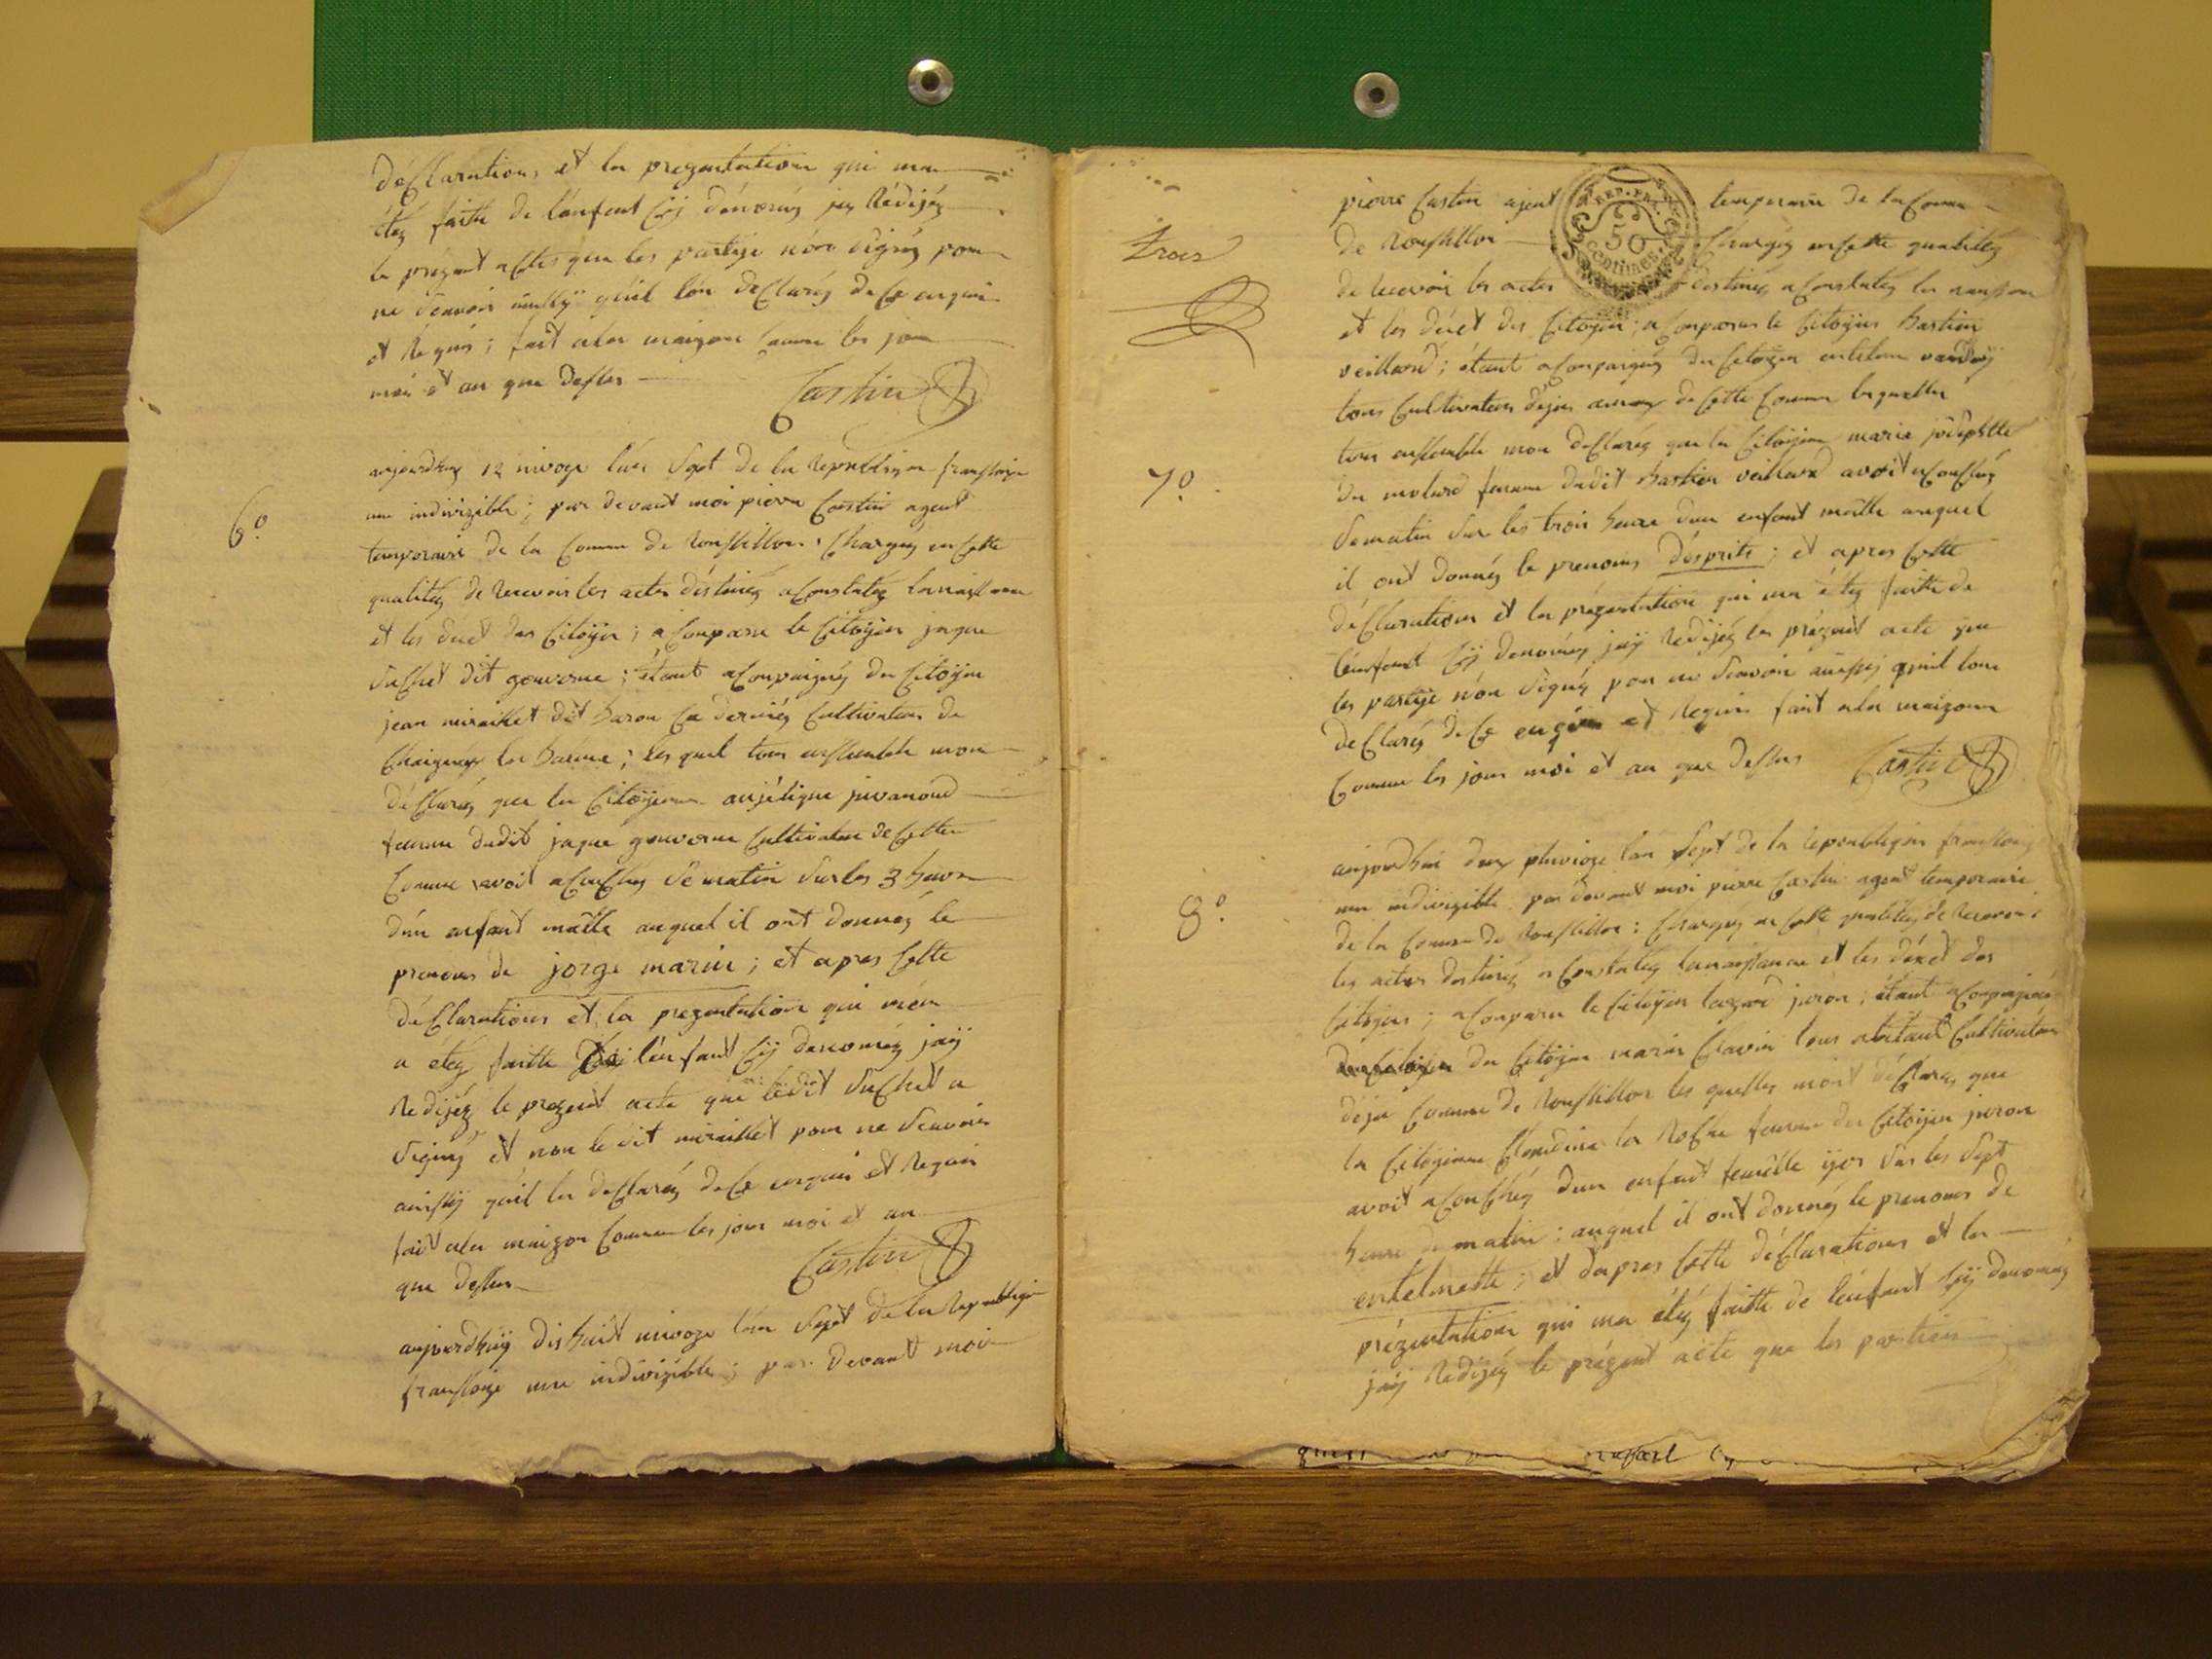 déclarations et la prezantation qui ma
étéz faitte de l'anfant Cÿ dénoméz jay Rédijéz
le prézant actes que les partÿe n'on signéz pour
ne Scavoir ainssÿ qu'il l'on declaréz de Ce enquis
et Requis ; fait a la maizon Comune les jour
moi et an que dessus
Castin
aujourdhuÿ 12 nivoze l'an Sept de la Republique franssoize
une indivizible ; par devant moi piere Castin agent
temporaire de la Comune de Roussillon . Chargéz en Cette
qualitéz de Recevoir les actes déstinéz a Constatéz la naissance
et les décet des Citoÿin ; a Comparu le Citoÿin jaque
Suchet dit gouverne ; étant aCompaignéz du Citoÿin
jean miraillet dit baron Ce derniéz Cultivateur de
la baume ; les quel tous enssemble mon
déClaréz que la Citoÿiene anjélique juvanond
femme dudit jaque gouverne Cultivateur de Cette
Comune avoit aCouChéz Se matin Sur les 3 heure
d'un anfant mâlle auquel il ont donnéz le
prenoms de jorge marin ; et apres Cette
déClarations et la prezantation qui m'en
a étéz faitte de l'anfant Cÿ denoméz jaÿ
Redijéz le prezent acte que ledit SuChet a
Signéz et non le dit miraillet pour ne Scavoir
ainssÿ qu'il la deClaréz de Ce enquis et Requis
fait a la maizon Comune les jour moi et an
que dessus
Castin
aujourdhuÿ dishuit nivoze l'an Sept de la Republique
franssoize une indivizible ; par devant moi
6°.
pierre Castin agent temporaire de la Comune
de Roussillon Chargéz en Cette qualitéz
de Recevoir les actes destinéz a Constatéz la naissance
et les décet des Citoÿin ; a Comparu le Citoÿin bastien
veillard ; étant aCompaignéz du Citoÿin
tous Cultivateur de Cette Comune lesquelles
tous enssemble mon deClaréz que la Citoÿiene marie jôséphtte
du molard femme dudit bastien veillard avoit aCouChéz
Se matin Sur les trois heure d'un enfant mâlle auquel
il ont donnéz le prenoms d'ésprits ; et apres Cette
déClarations et la prézantation qui ma étéz faitte de
l'énfant Cÿ denoméz jaÿ Redijéz le prézent acte que
les partÿe n'on Signéz pour ne Scavoir ainssÿ qu'il l'on
deClaréz de Ce enquis et Requis fait a la maizon
Comune les jour moi et an que dessus Castin
aujourdhui deux pluvioze l'an Sept de la Republique franssoize
une indivizible par devant moi pierre Castin agent temporaire
de la Comune de Roussillon : Chargéz en Cette qualitéz de Recevoir
les actes destinéz a Constatéz la naissance et les décet des
Citoÿin ; a Comparu le Citoÿin lazard juron ; étant aCompaignéz
du Citoÿin marin Clavin tous abitant Cultivateur
Comune de Roussillon les quelles mont déClaréz que
la Citoÿiene Claudine la RoChe femme du Citoÿin juron
avoit aCouChéz d'un enfant femêlle ÿer Sur les Sept
heure de matin ; auquel il ont donnéz le prenoms de
entelmette ; et d'apres Cette déClarations et la
prézentation qui ma étéz faitte de l'énfant Cÿ denoméz
jaÿ Redijéz le prézent acte que les parties
trois
7°.
8°.
REP. FRA.
50
Centimes.